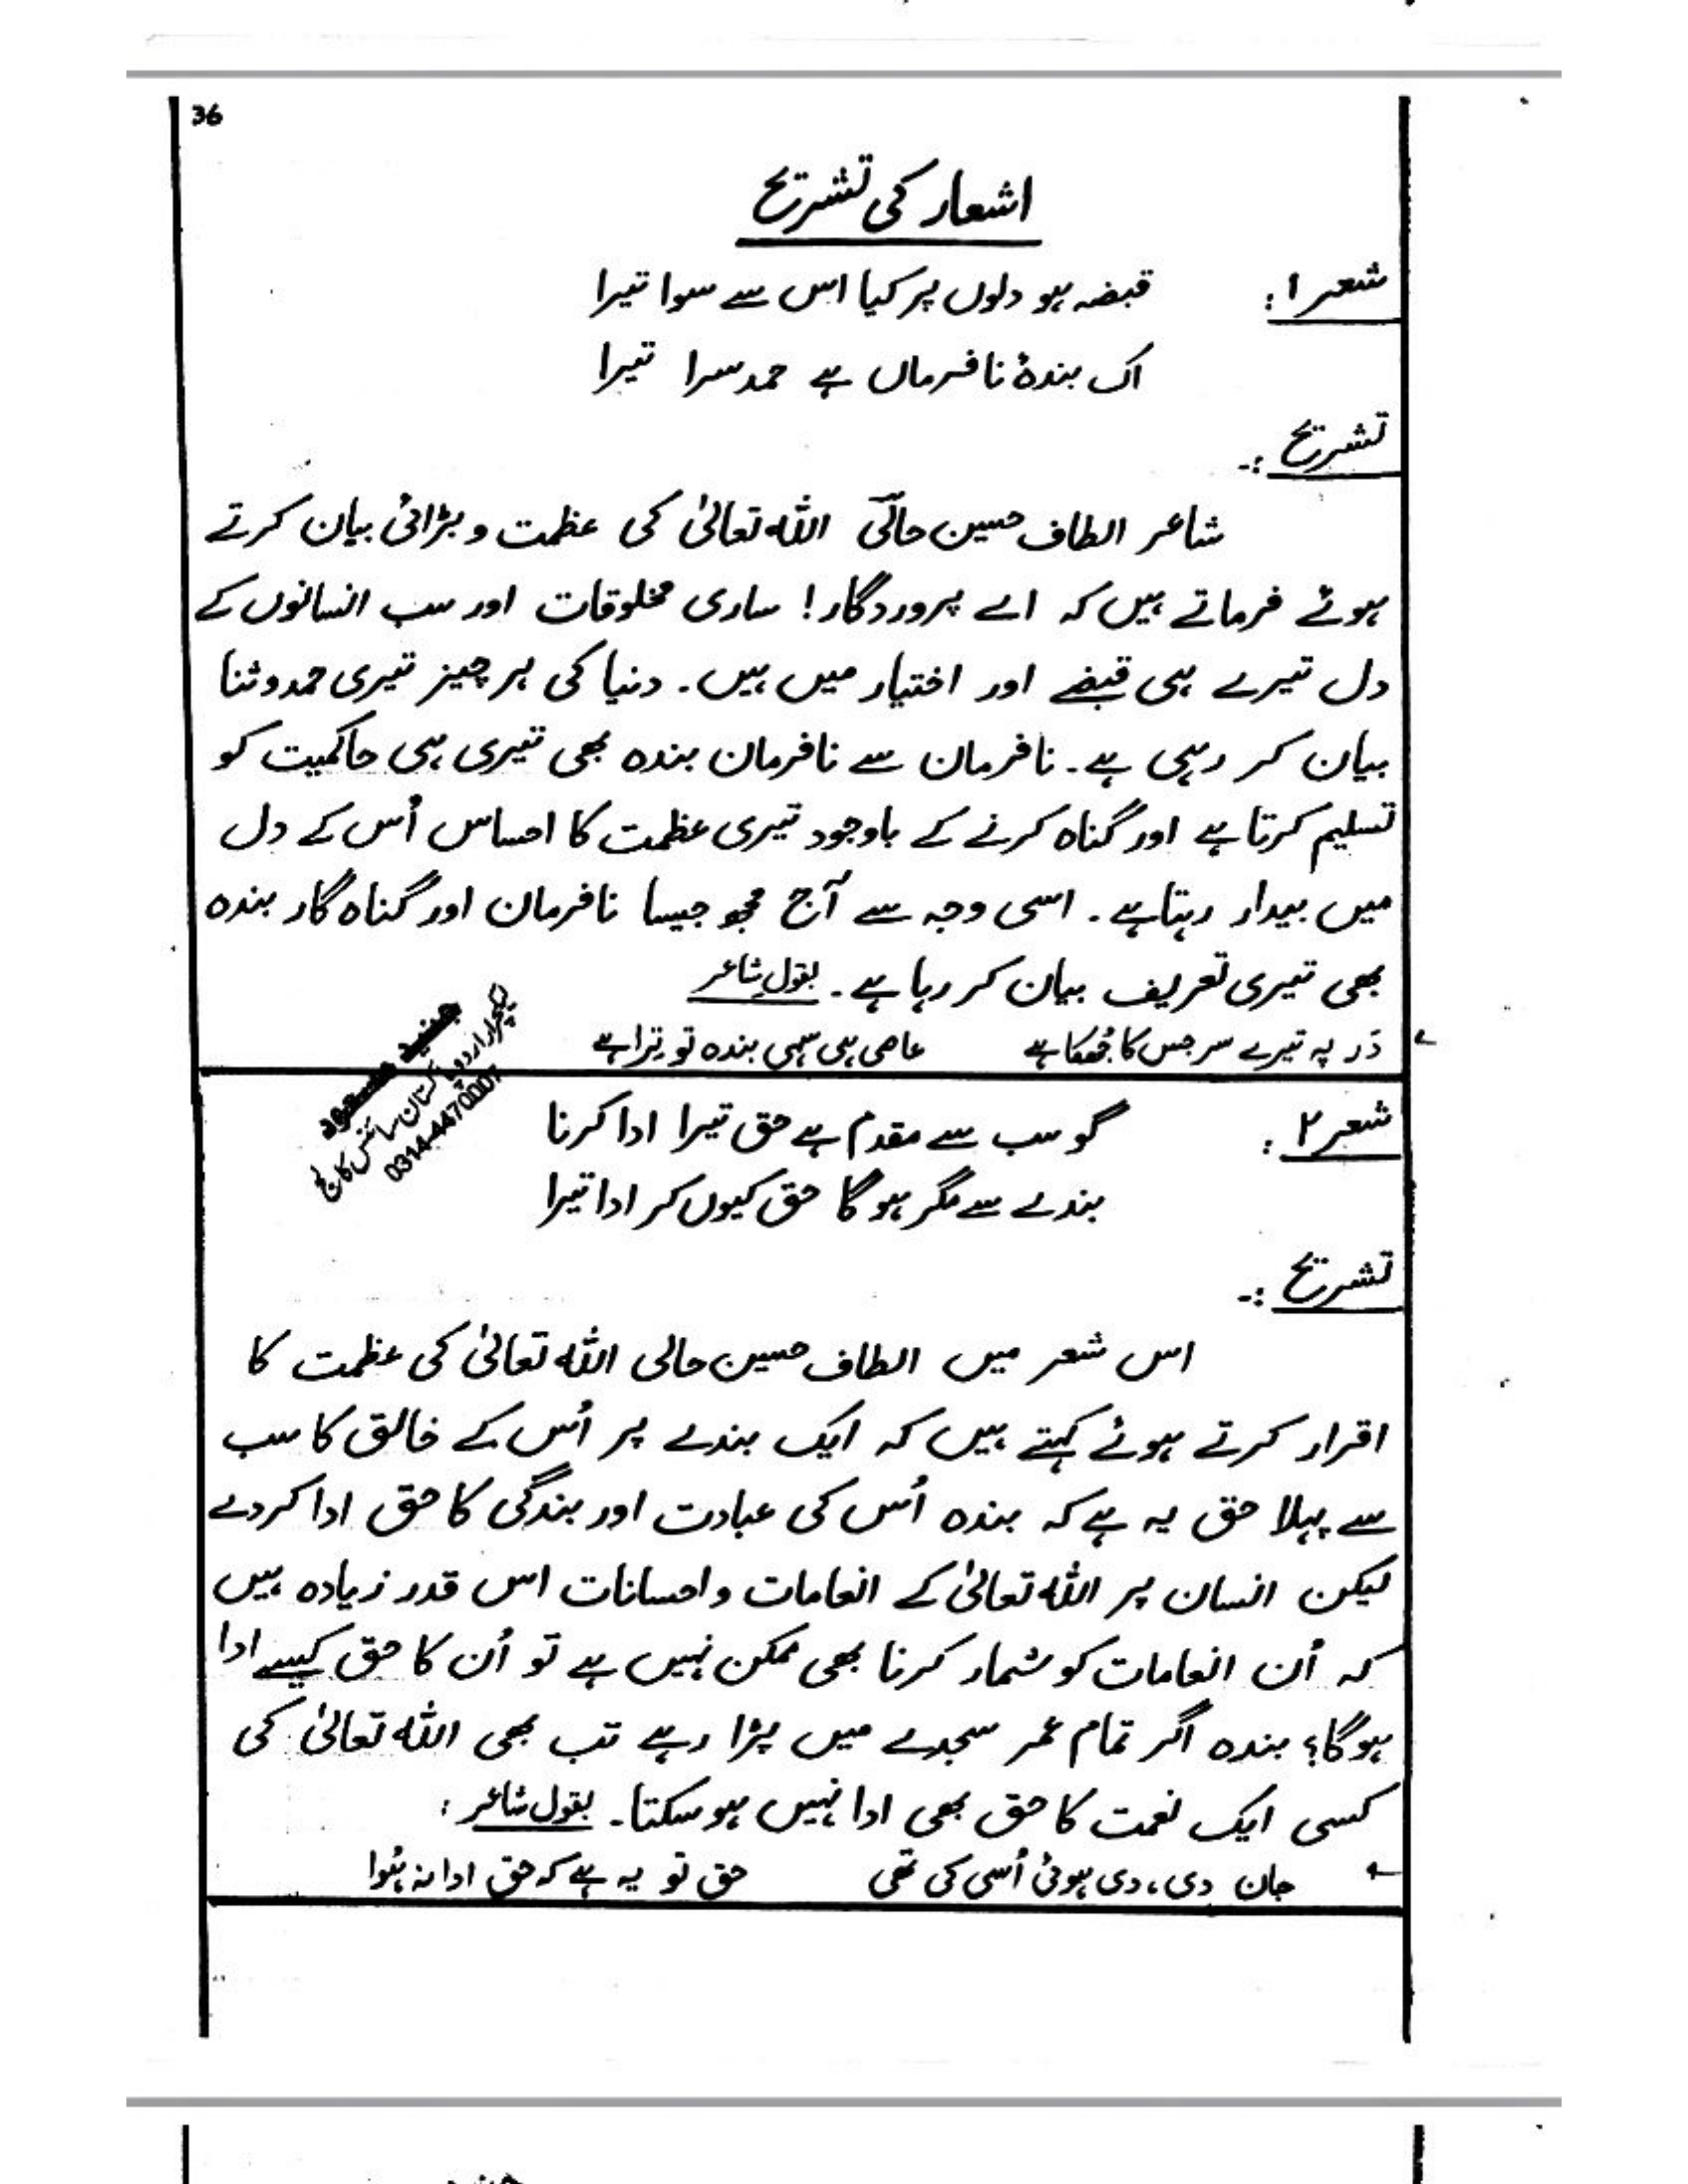 36
اشعار کی تشریح
شعر ۱: قبضہ ہو دلوں پر کیا اس سے سوا تیرا
اک بندۂ نافرماں ہے حمد سرا تیرا
تشریح :۔
شاعر الطاف حسین حالیؔ اللہ تعالیٰ کی عظمت و بڑائی بیان کرتے
ہوئے فرماتے ہیں کہ اے پروردگار! ساری مخلوقات اور سب انسانوں کے
دل تیرے ہی قبضے اور اختیار میں ہیں۔ دنیا کی ہر چیز تیری حمد و ثنا
بیان کر رہی ہے۔ نافرمان سے نافرمان بندہ بھی تیری ہی حاکمیت کو
تسلیم کرتا ہے اور گناہ کرنے کے باوجود تیری عظمت کا احساس اُس کے دل
میں بیدار رہتا ہے۔ اسی وجہ سے آج مجھ جیسا نافرمان اور گناہ گار بندہ
بھی تیری تعریف بیان کر رہا ہے۔ بقول شاعر
دَر پہ تیرے سر جس کا جُھکا ہے عاصی ہی سہی بندہ تو تِرا ہے
جنید مسعود
لیکچرار اردو پاکستان سائنس کالج
0314-4470007
شعر ۲: گو سب سے مقدم ہے حق تیرا ادا کرنا
بندے سے مگر ہو گا حق کیوں کر ادا تیرا
تشریح :۔
اس شعر میں الطاف حسین حالی اللہ تعالیٰ کی عظمت کا
اقرار کرتے ہوئے کہتے ہیں کہ ایک بندے پر اُس کے خالق کا سب
سے پہلا حق یہ ہے کہ بندہ اُس کی عبادت اور بندگی کا حق ادا کردے
لیکن انسان پر اللہ تعالیٰ کے انعامات و احسانات اس قدر زیادہ ہیں
کہ اُن انعامات کو شمار کرنا بھی ممکن نہیں ہے تو اُن کا حق کیسے ادا
ہوگا؟ بندہ اگر تمام عمر سجدے میں پڑا رہے تب بھی اللہ تعالیٰ کی
کسی ایک نعمت کا حق بھی ادا نہیں ہو سکتا۔ بقول شاعر :
جان دی، دی ہوئی اُسی کی تھی حق تو یہ ہے کہ حق ادا نہ ہُوا